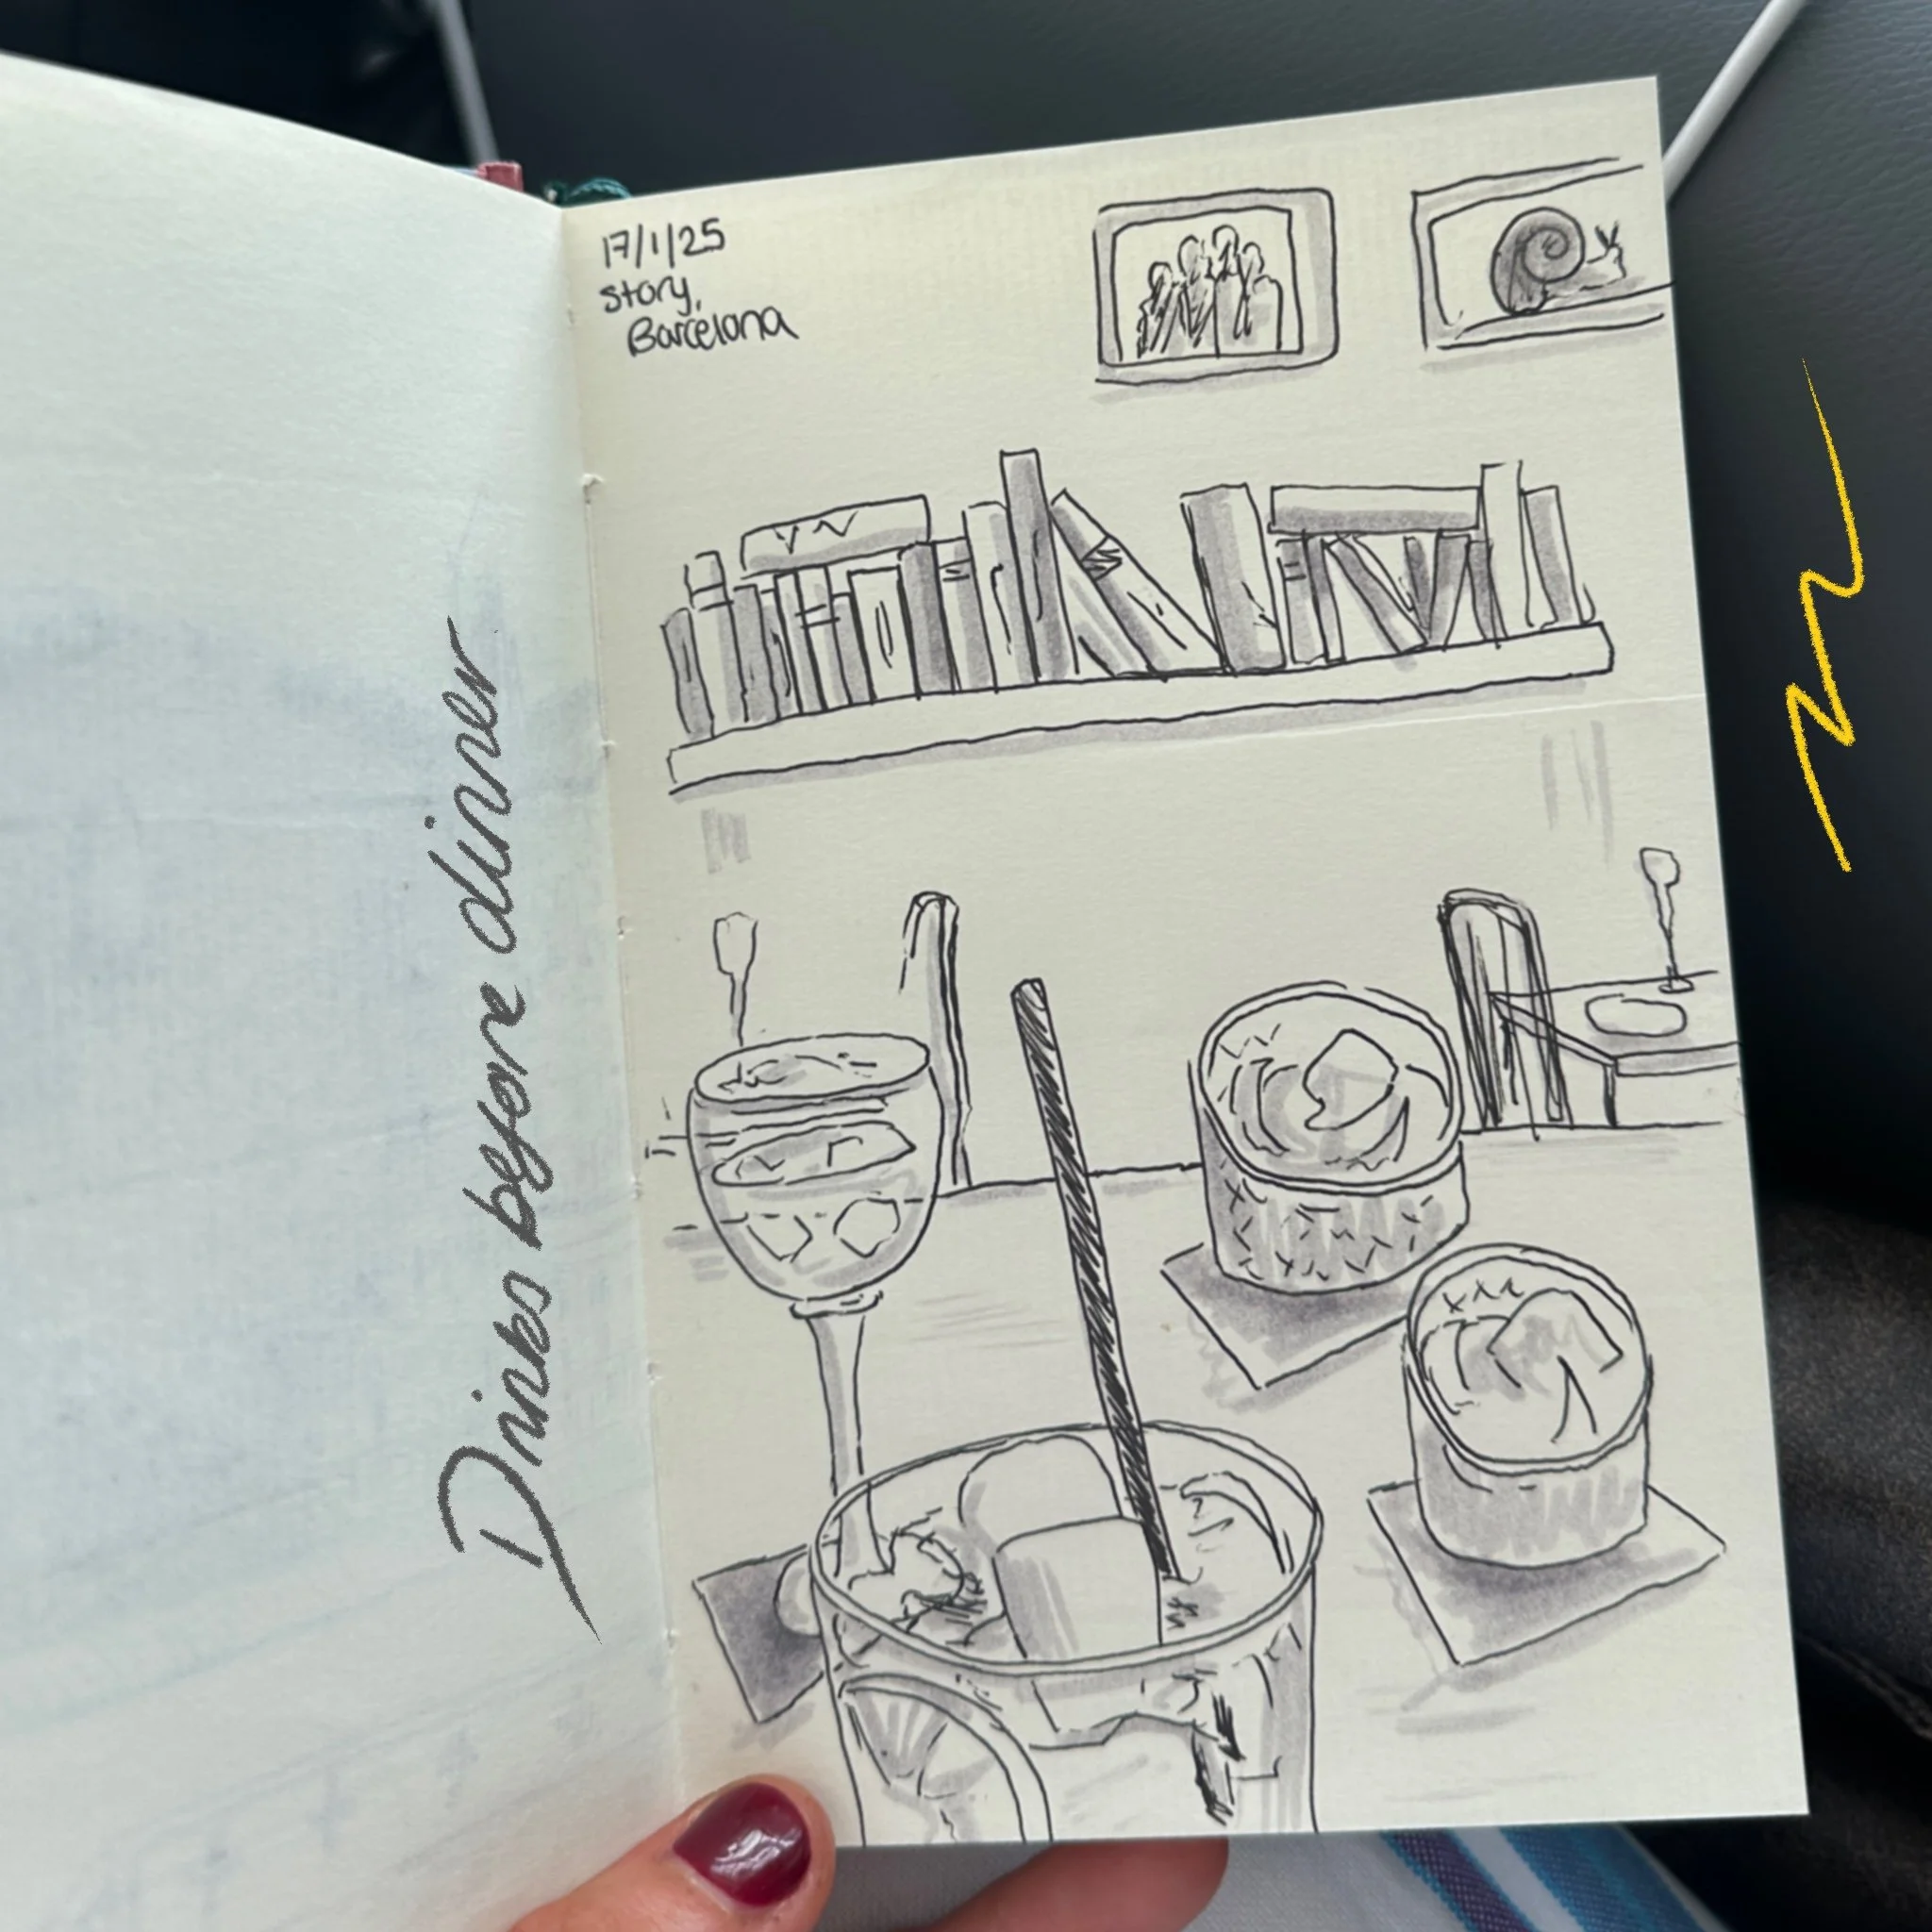 17/1/25
story,
Barcelona
Drinks before dinner